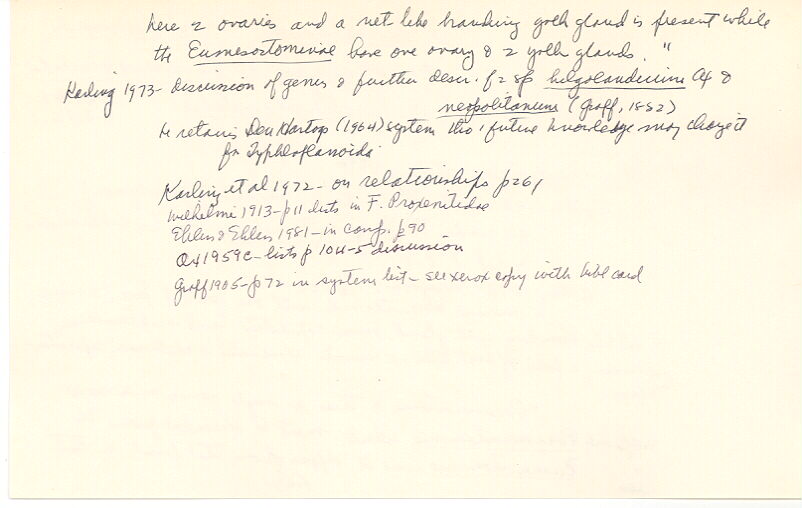 here 2 ovaries and a net like branching yolk gland is present while
the Eumesostominae have one ovary & 2 yolk glands. "
Karling 1973 - discussion of genus & further descr. of 2 sp helgolandicum Ax &
neapolitanum (Graff, 1882)
He retains Den Hartog (1964) system tho' future knowledge may change it
for Typhloplanoids
Karling et al 1972 - on relationships p261
Wilhelmi 1913 - p11 lists in F. Proxenetidae
Ehlers & Ehlers 1981 - in comp. p90
Ax 1959c - lists p 104-5 discussion
Graff 1905 - p72 in system list - see xerox copy with bibl card